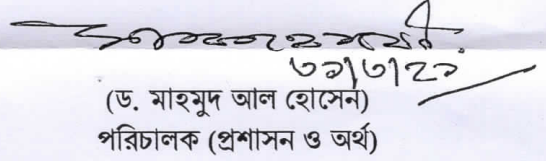 ৩১/৩/২১
(ড. মাহমুদ আল হোসেন)
পরিচালক (প্রশাসন ও অর্থ)